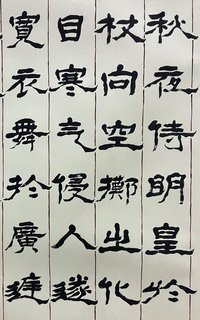 秋夜侍明皇於
杖向空擲之化
目寒气侵人遂
寬衣舞於廣庭